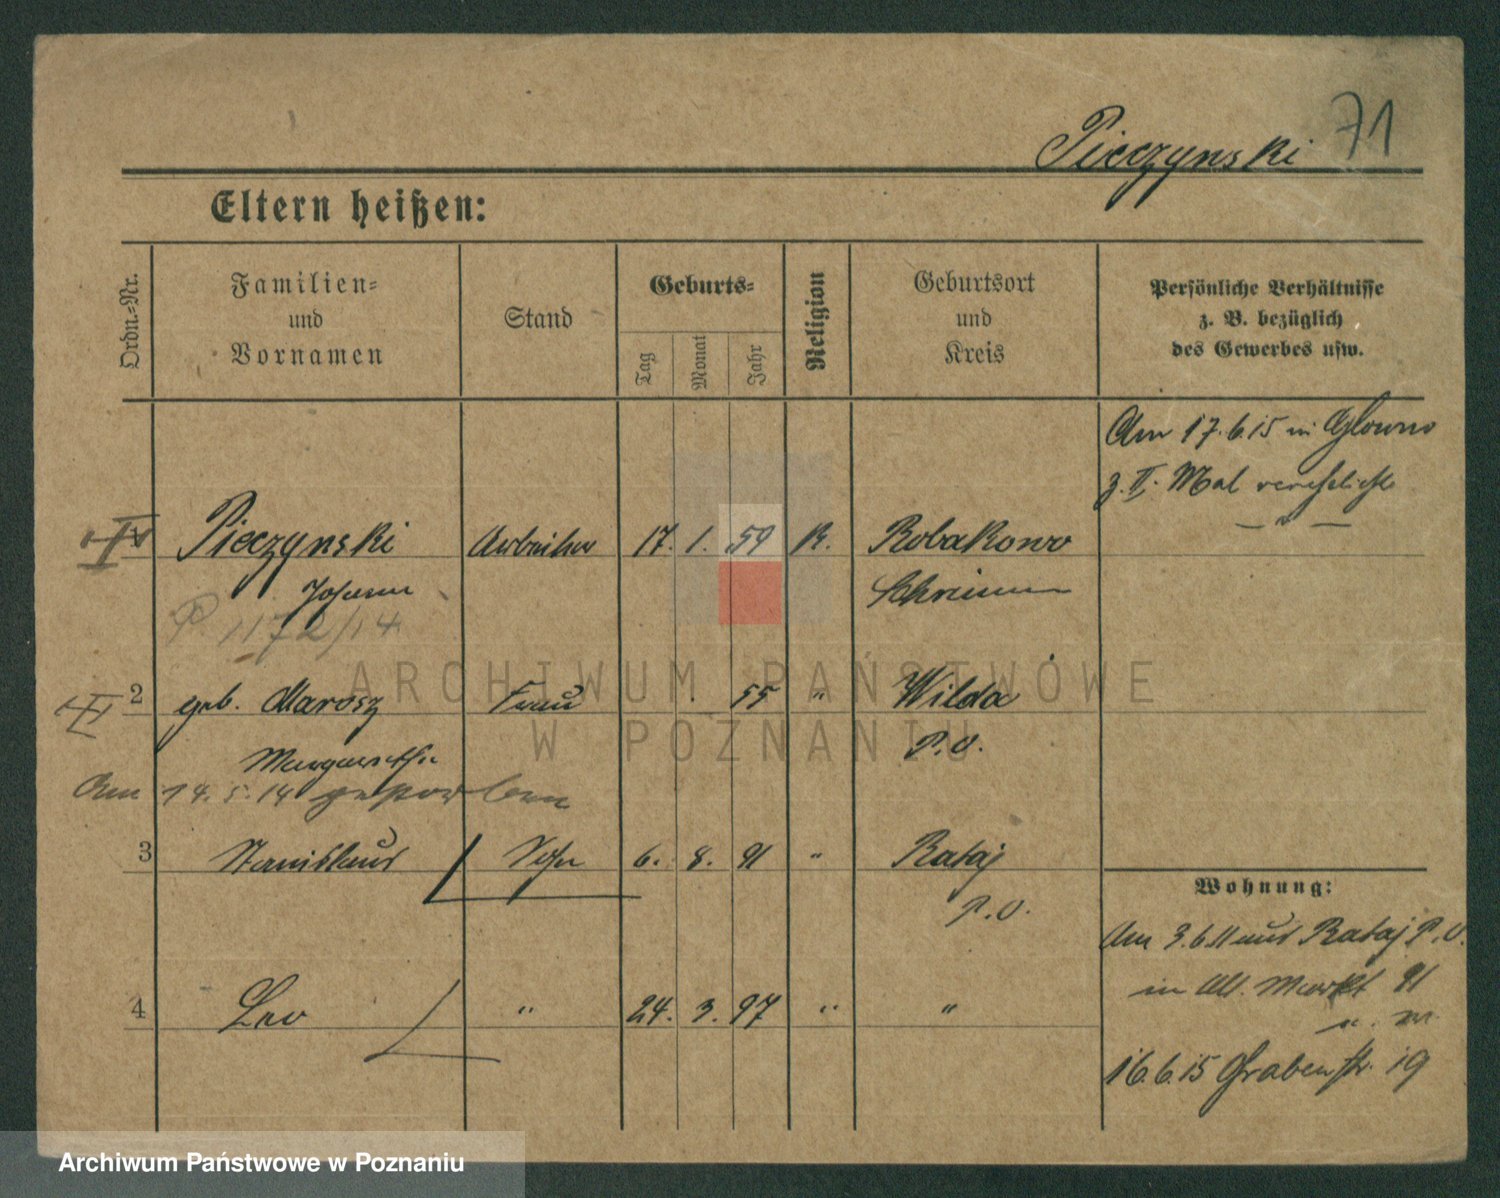 Pieczynski 71
Eltern heißen:
Ordn.-Nr.
Familien-
und
Vornamen
Stand
Geburts-
Tag
Monat
Jahr
Religion
Geburtsort
und
Kreis
Persönliche Verhältnisse
z. B. bezüglich
des Gewerbes usw.
Am 17.6.15 in Glowno
z. II. Mal verehelicht
Pieczynski Arbeiter 17. 1. 59 K. Robakowo
Johann Schrimm
P. 1172/14
2 geb. Marosz Frau 55 " Wilda
Margarethe P.O.
Am 14.5.14 gestorben
3 Stanislaus Sohn 6. 8. 91 " Rataj
P.O.
4 Leo " 24. 3. 97 " "
Wohnung:
Am 3.6.11 aus Rataj P.O.
in Alt. Markt 91
16.6.15 Grabenstr. 19
ARCHIWUM PAŃSTWOWE
W POZNANIU
Archiwum Państwowe w Poznaniu